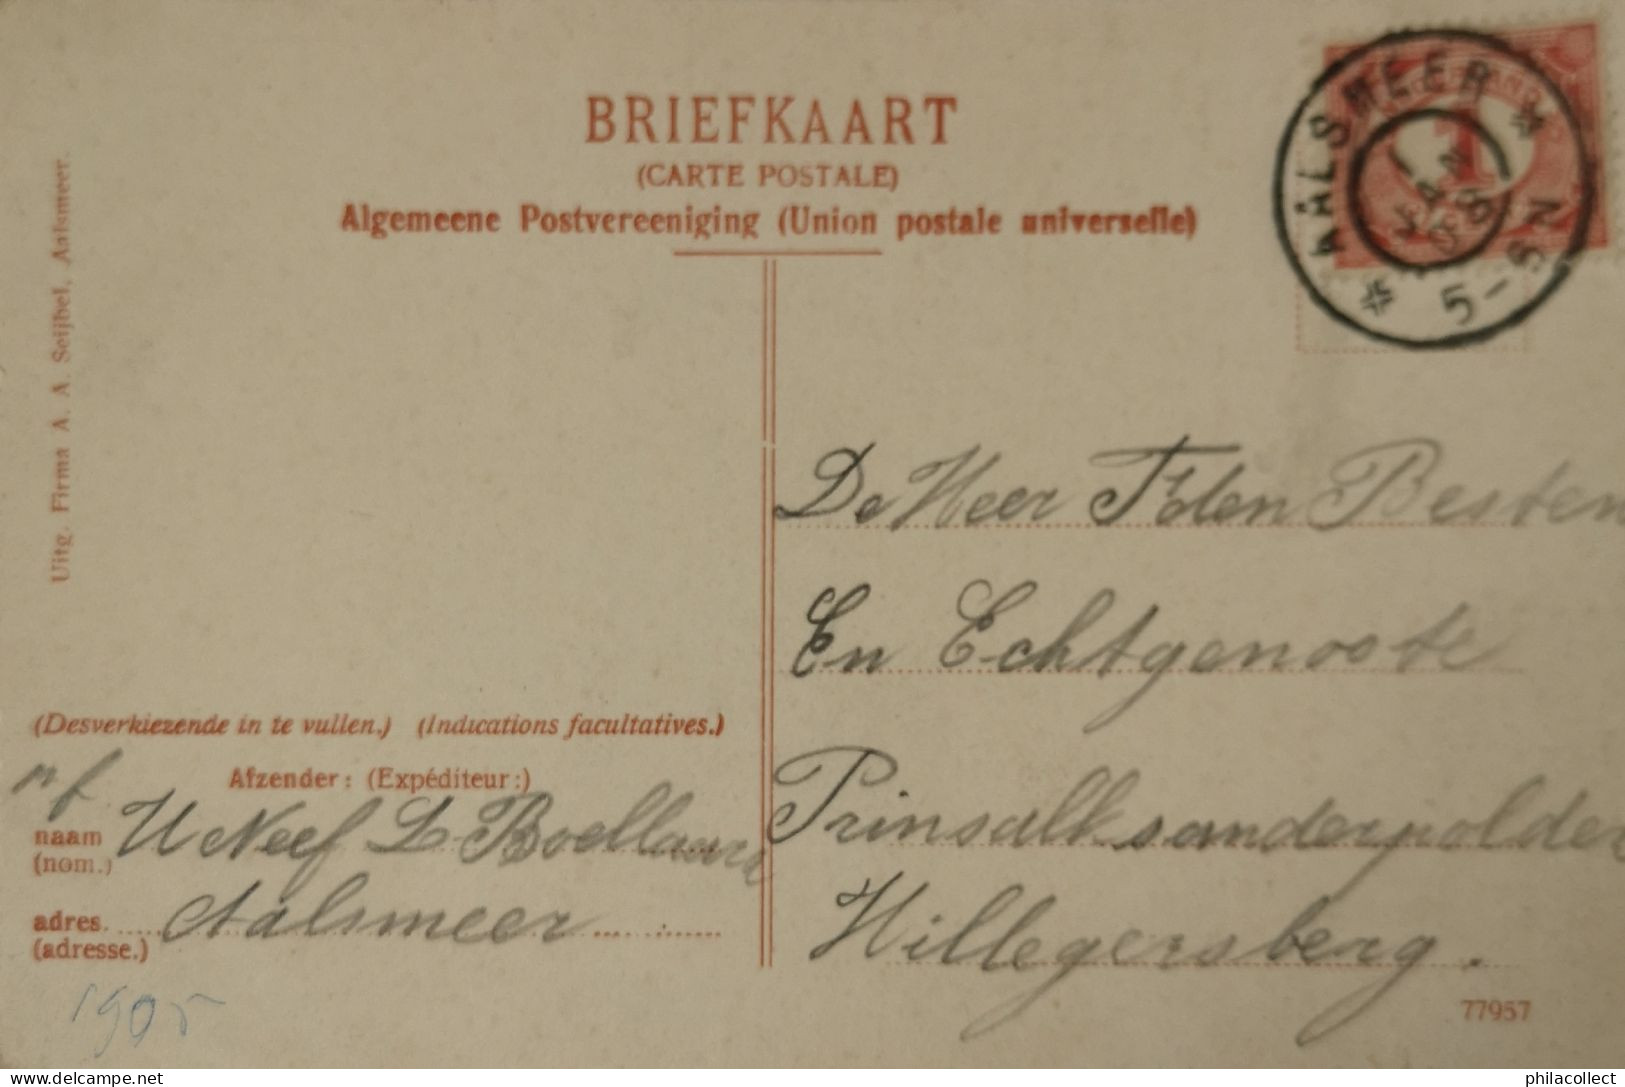 BRIEFKAART
(CARTE POSTALE)
Algemeene Postvereeniging (Union postale universelle)
Uitg. Firma A. A. Seijbel, Aalsmeer.
AALSMEER
1 JAN 08
5-8N
1
De Heer F den Besten
En Echtgenoote
Prinsalksanderpolder
Hillegersberg.
(Desverkiezende in te vullen.) (Indications facultatives.)
Afzender: (Expéditeur:)
naam U Neef L Boellaard
(nom.)
adres. Aalsmeer
(adresse.)
1905
77957
philacollect